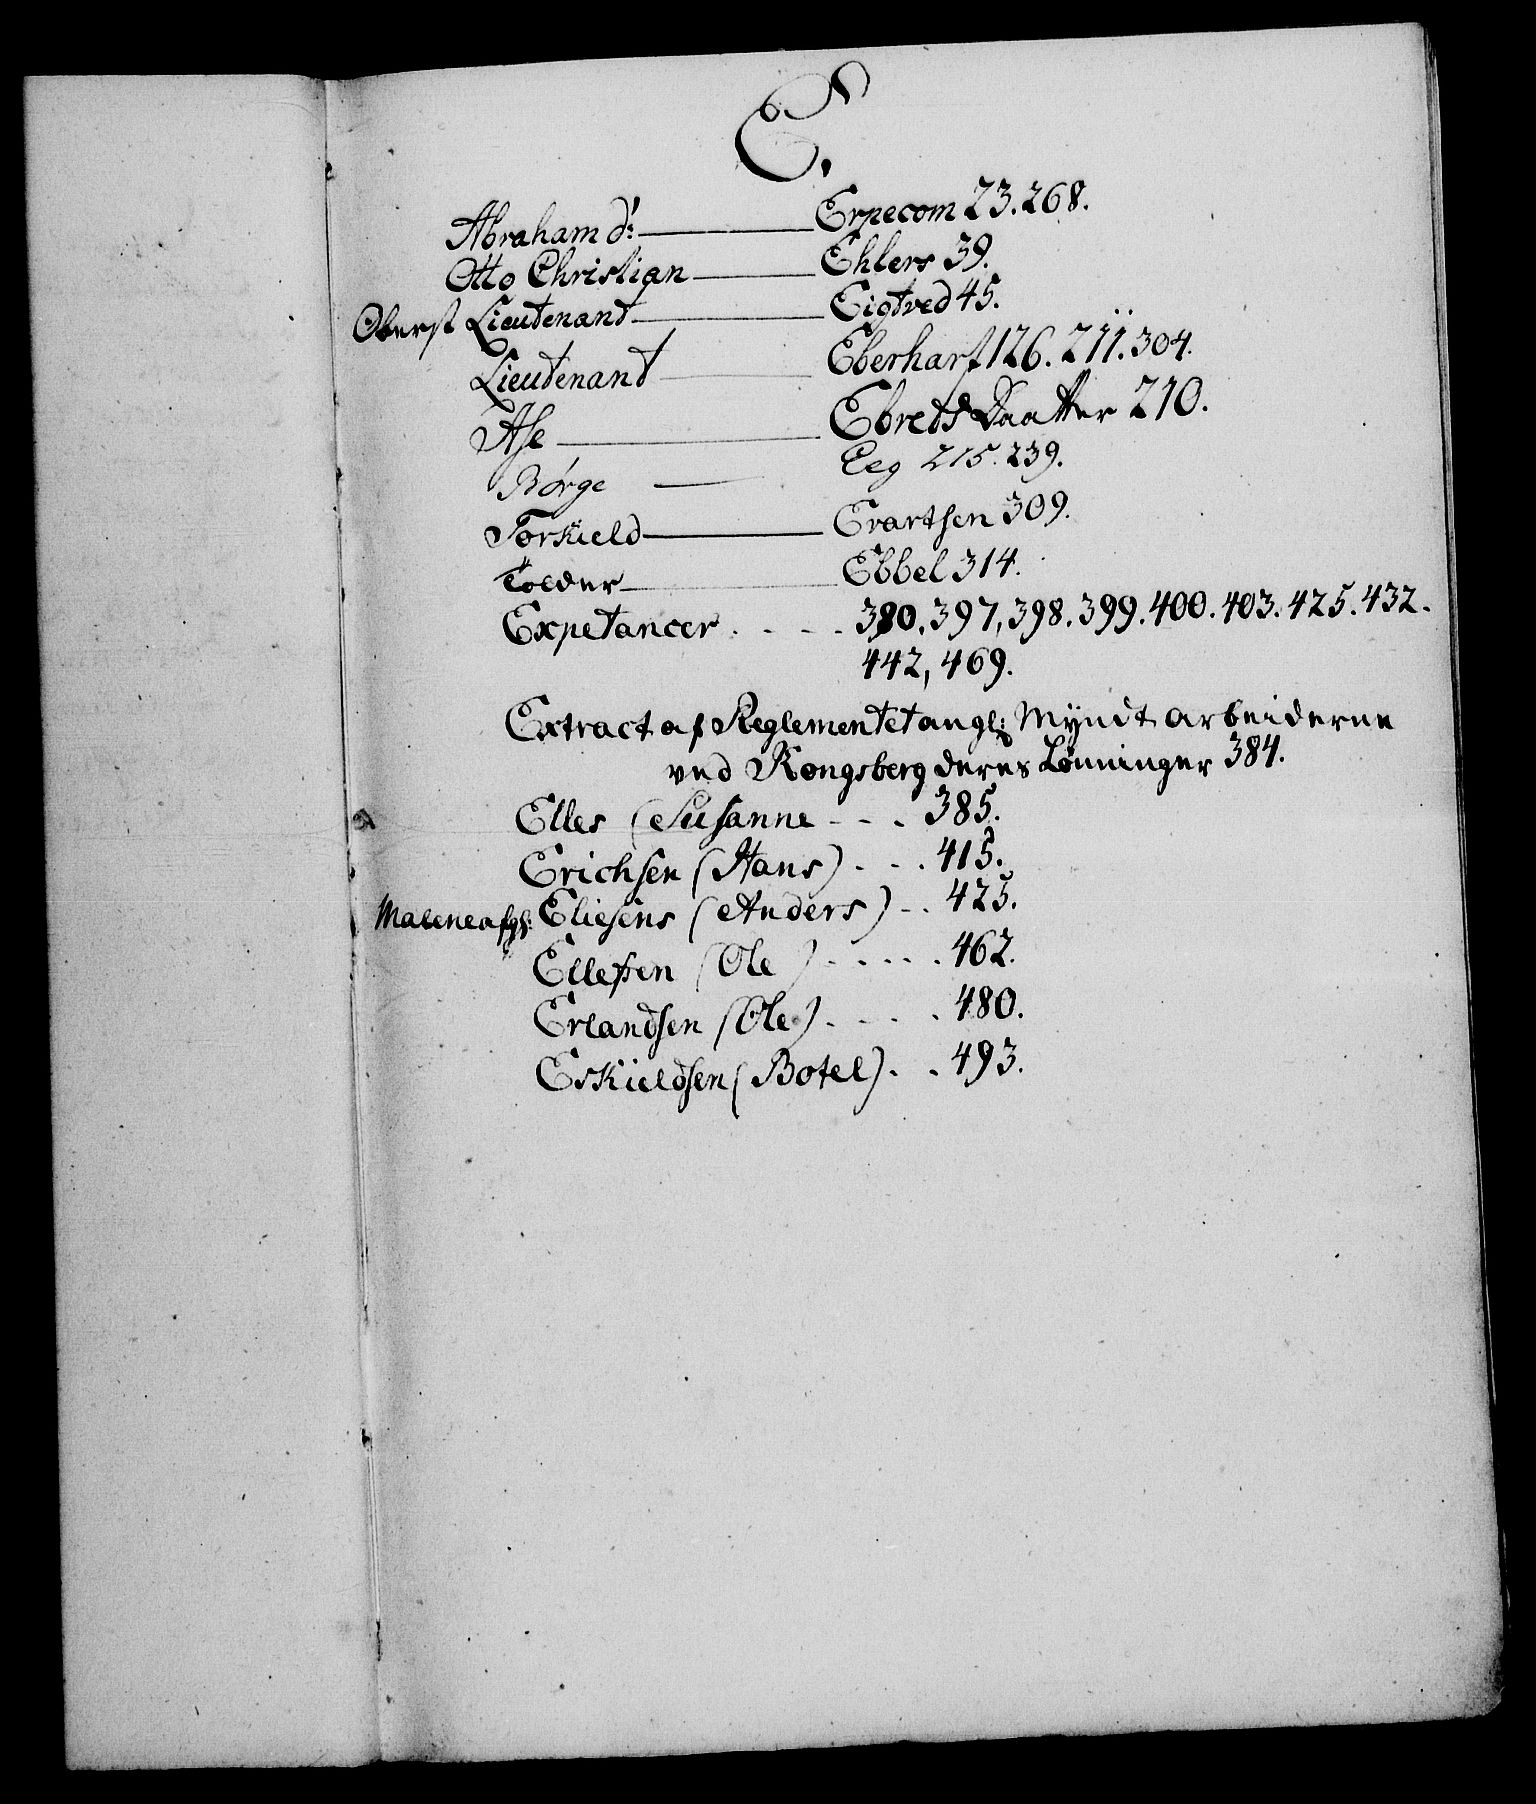 E.
Abraham d: Erpecom 23. 268.
Otto Christian Ehlers 39.
Oberst Lieutenant Eigtved 45.
Lieutenant Eberharf 126. 211. 304.
Ase Ebreds Daatter 210.
Börge Eeg 215. 239.
Torkield Evartsen 309.
Tolder Ebbel 314.
Expetancer . . . . 380, 397, 398. 399. 400. 403. 425. 432.
442, 469.
Extract af Reglementet angl: Myndt arbeiderne
ved Kongsberg deres Lönninger 384.
Elles (Susanne - - . 385.
Erichsen (Hans) . . . 415.
Malene afgl: Eliesens (Anders) - . 425.
Ellessen (Ole) . . . . . 462.
Erlandsen (Ole) . . . . 480.
Eskieldsen (Botel) . . 493.